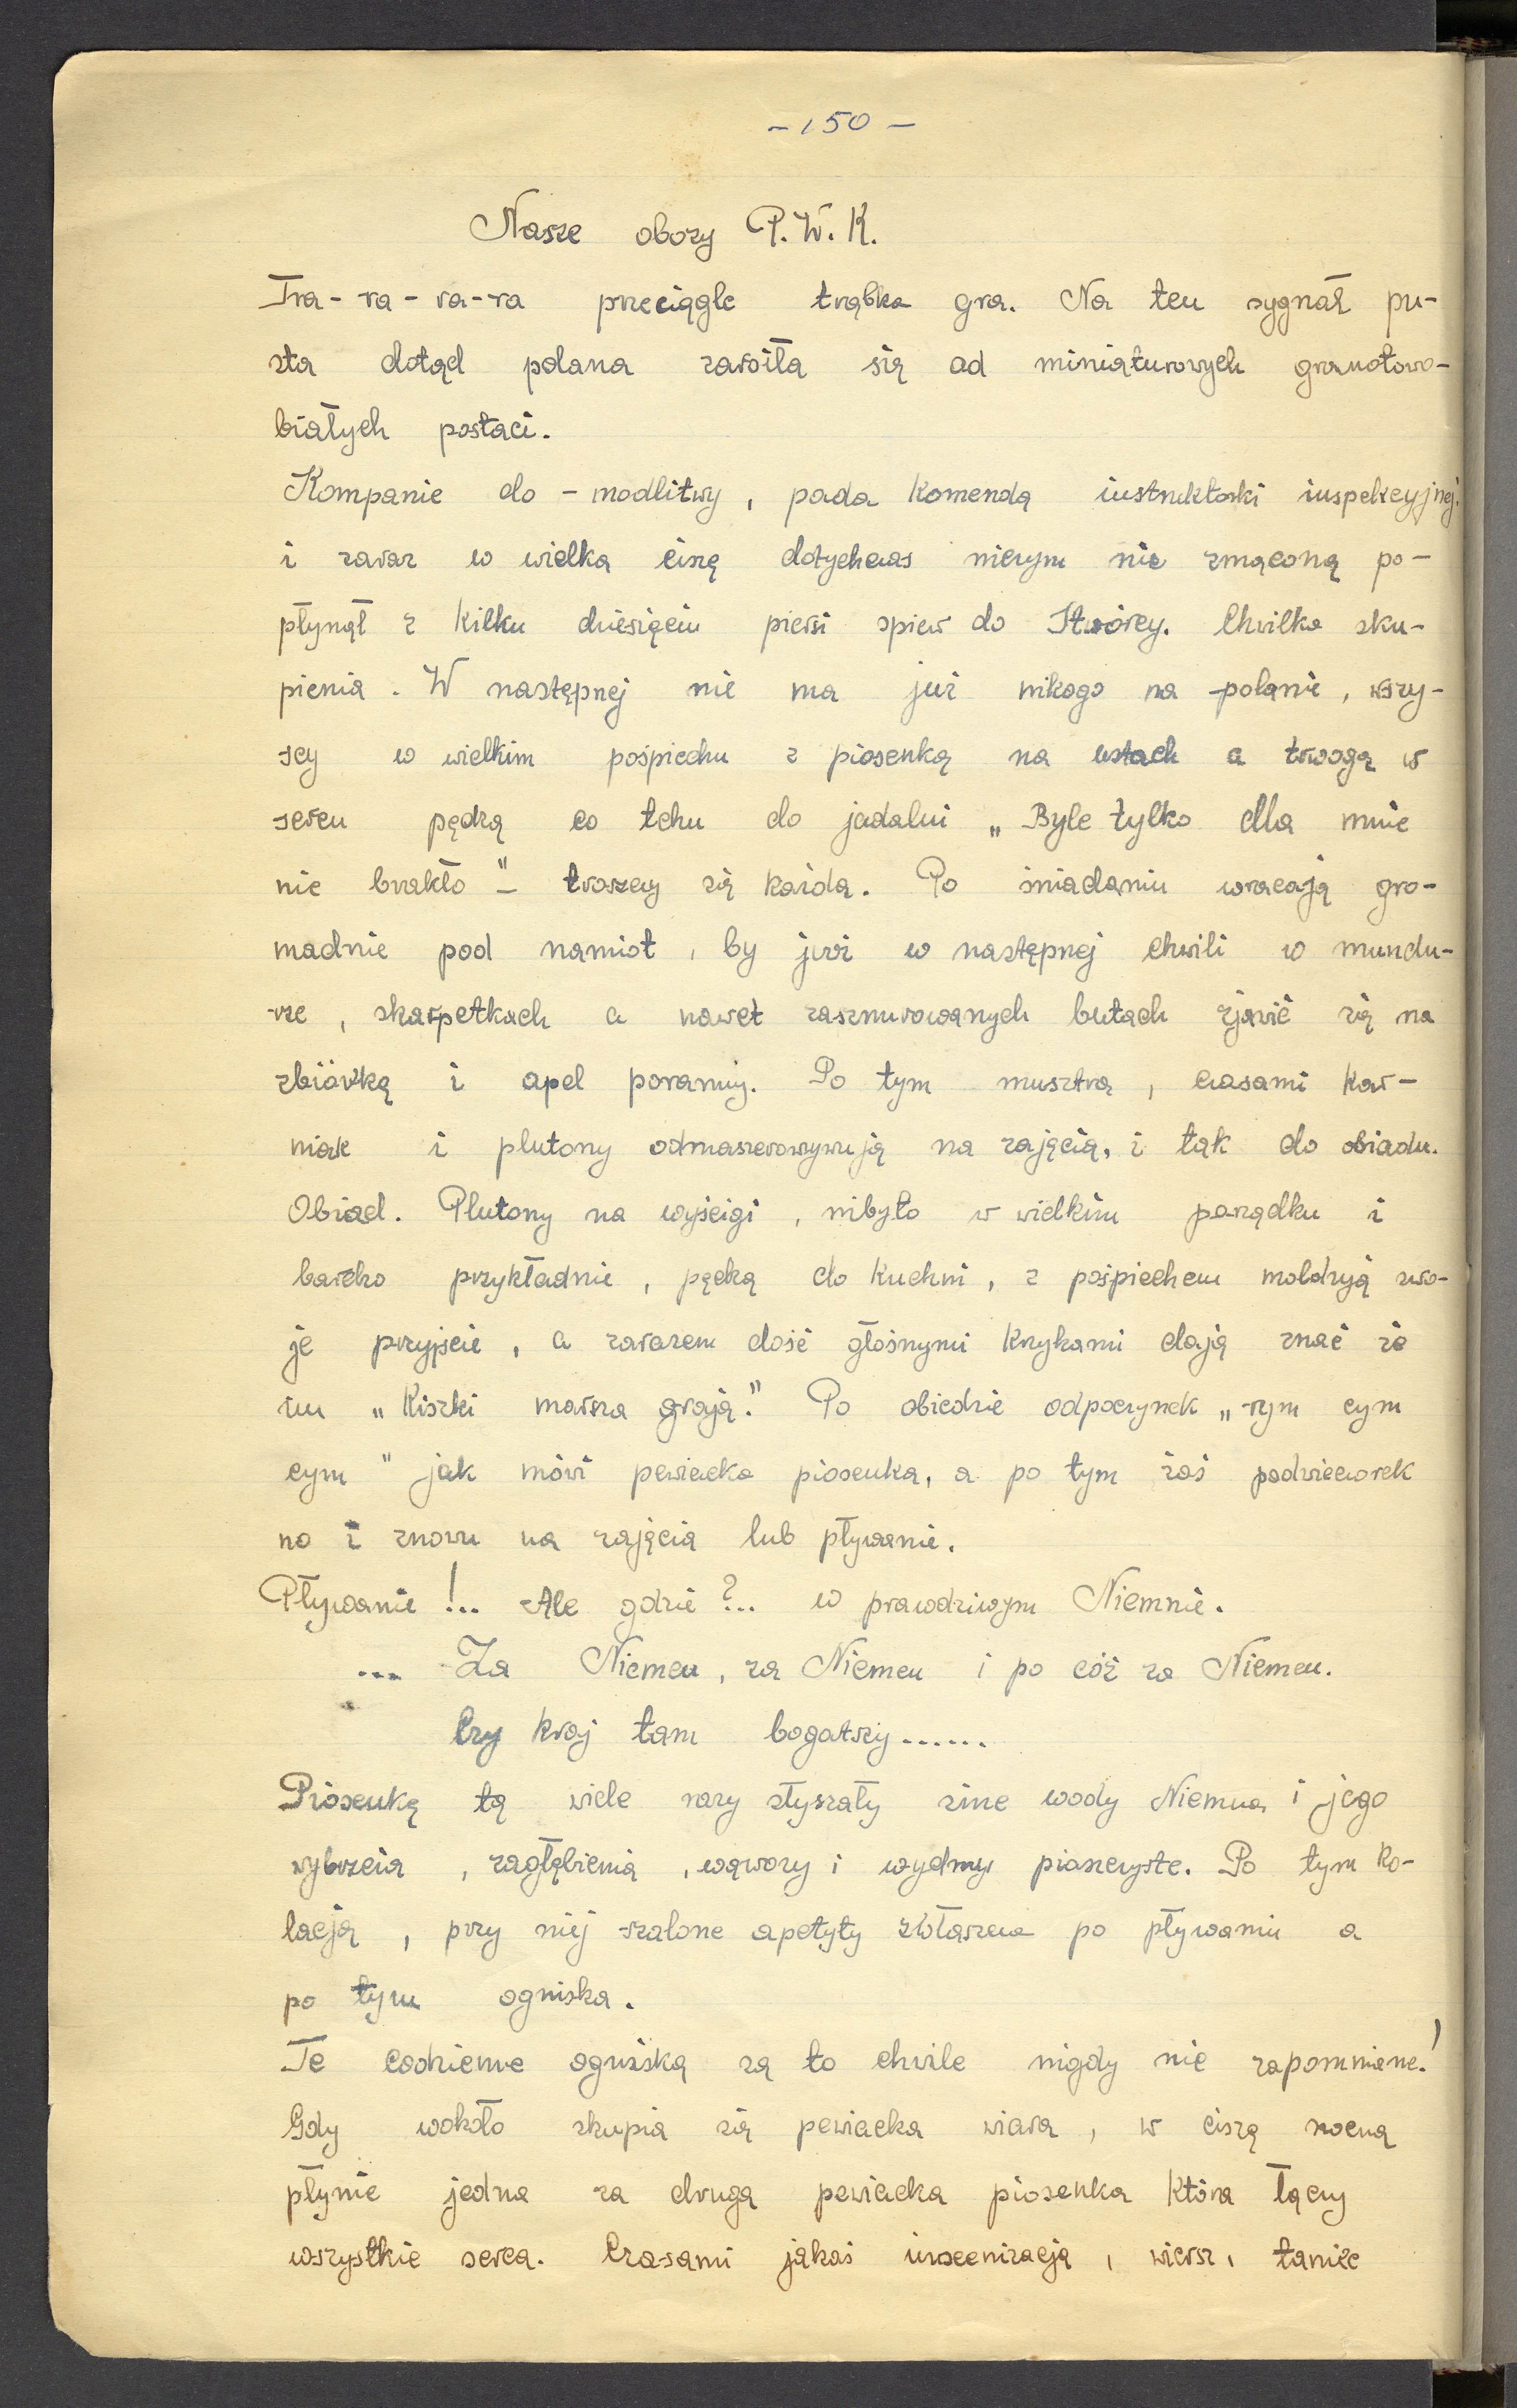 - 150 -
Nasze obozy P.W.K.
Tra-ra-ra-ra przeciągle trąbka gra. Na ten sygnał pu-
sta dotąd polana zaroiła się od miniaturowych granatowo-
białych postaci.
Kompanie do - modlitwy, pada komenda instruktorki inspekcyjnej.
i zaraz w wielka ciszę dotychczas niczym nie zmąconą po-
płynął z kilku dziesięciu piersi spiew do Stwórcy. Chwilka sku-
pienia. W następnej nie ma już nikogo na polanie, wszy-
scy w wielkim pośpiechu z piosenką na ustach a trwogą w
sercu pędzą co tchu do jadalni „Byle tylko dla mnie
nie brakło" - troszczy się każda. Po śniadaniu wracają gro-
madnie pod namiot, by już w następnej chwili w mundu-
rze, skarpetkach a nawet zasznurowanych butach zjawić się na
zbiórkę i apel poranny. Po tym musztra, czasami kar-
niak i plutony odmaszerowywują na zajęcia, i tak do obiadu.
Obiad. Plutony na wyścigi, nibyto w wielkim porządku i
bardzo przykładnie, pędzą do kuchni, z pośpiechem meldują swo-
je przyjście, a zarazem dość głośnymi krzykami dają znać że
im „kiszki marsza grają." Po obiedzie odpoczynek „rym cym
cym" jak mówi pewiacka piosenka, a po tym zaś podwieczorek
no i znowu na zajęcia lub pływanie.
Pływanie!... Ale gdzie?... w prawdziwym Niemnie.
... Za Niemen, za Niemen i po cóż za Niemen.
Czy kraj tam bogatszy......
Piosenkę tą wiele razy słyszały sine wody Niemna i jego
wybrzeża, zagłębienia, wąwozy i wydmy piaszczyste. Po tym ko-
lacja, przy niej szalone apetyty zwłaszcza po pływaniu a
po tym ogniska.
Te codzienne ogniska są to chwile nigdy nie zapomniane!
Gdy wokoło skupia się pewiacka wiara, w ciszę nocną
płynie jedna za drugą pewiacka piosenka która łączy
wszystkie serca. Czasami jakaś inscenizacja, wiersz, taniec